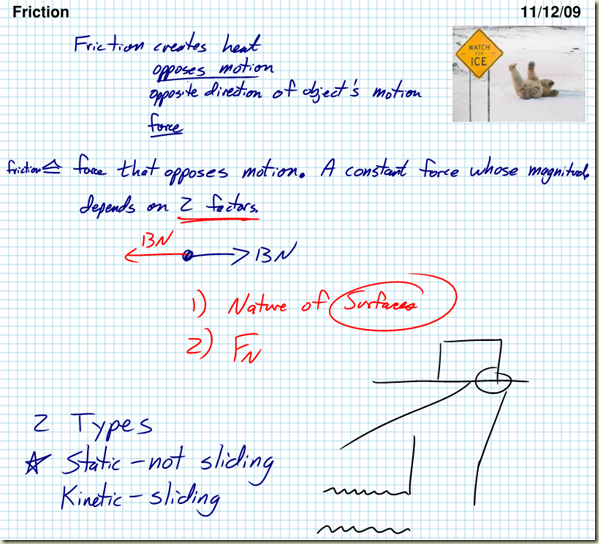 Friction 11/12/09
WATCH
FOR
ICE
Friction creates heat
opposes motion
opposite direction of object's motion
force
friction ≙ force that opposes motion. A constant force whose magnitude
depends on 2 factors.
13N 13N
1) Nature of Surfaces
2) FN
2 Types
☆ Static - not sliding
Kinetic - sliding